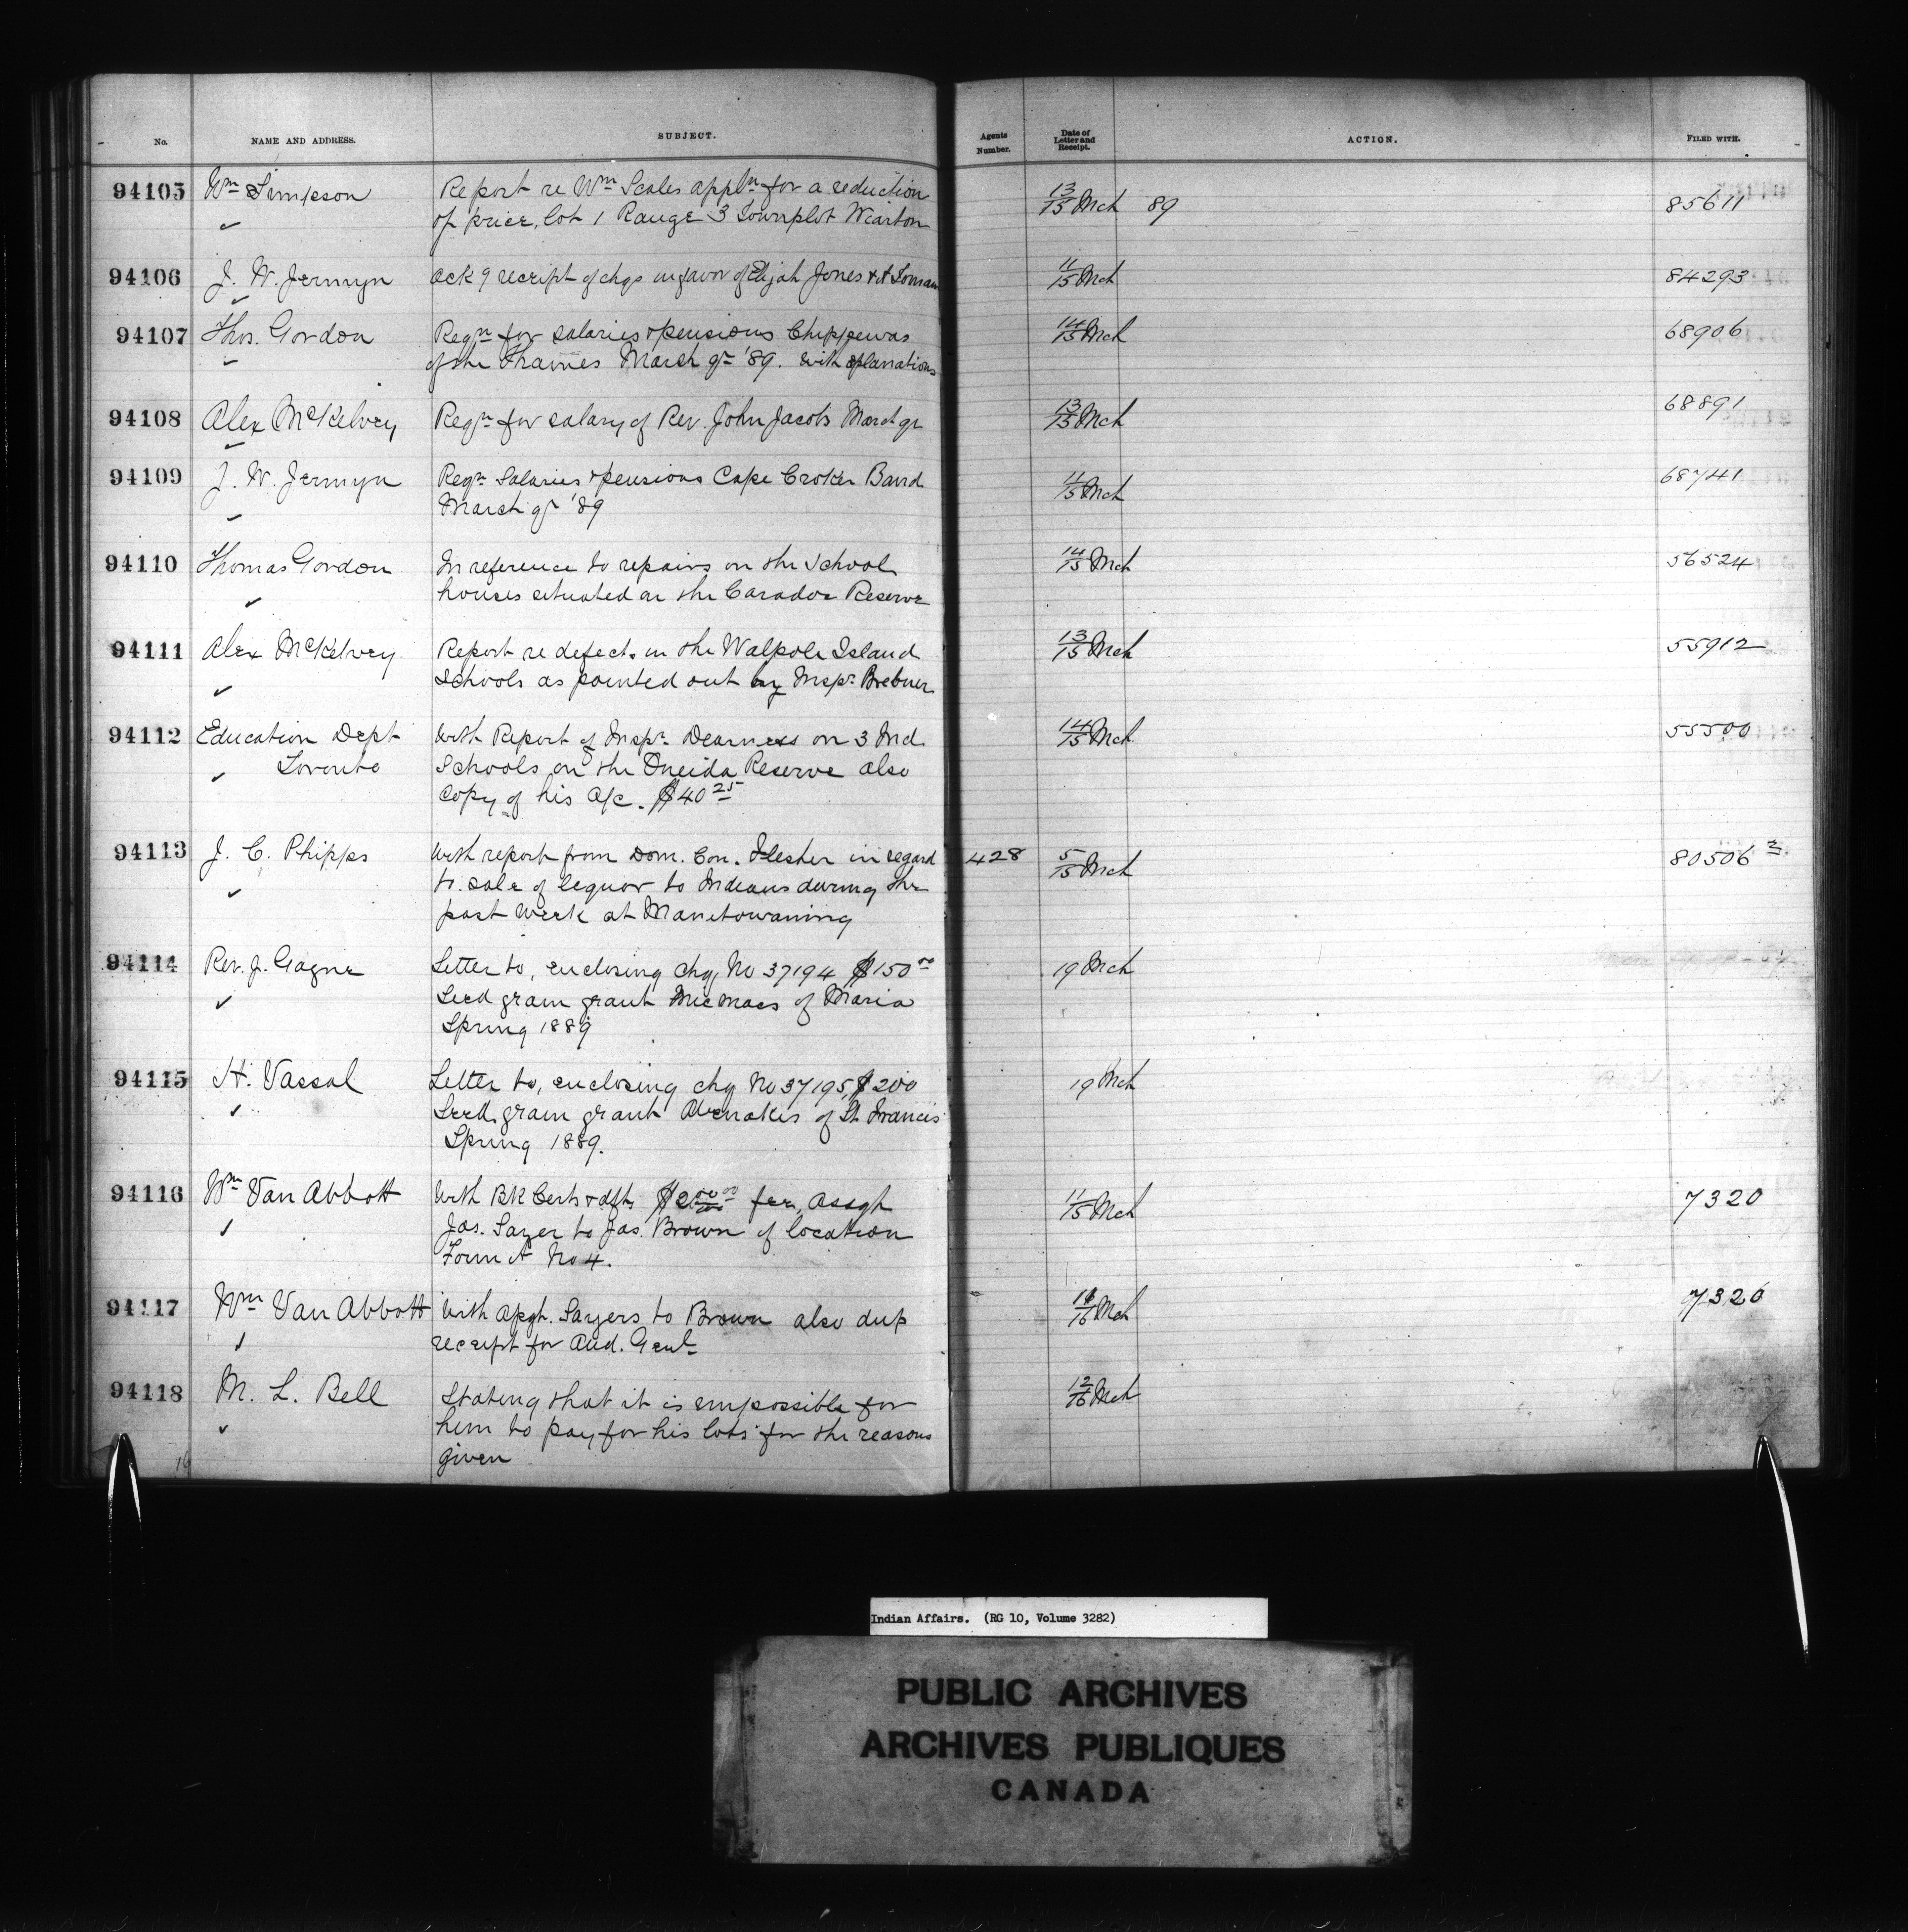 No. NAME AND ADDRESS. SUBJECT. Agents Number. Date of Letter and Receipt. ACTION. FILED WITH.
94105 Wm Simpson Report re Wm Scales appln for a reduction 13/15 Mch 89 85611
of price, lot 1 Range 3 Townplot Wiarton
94106 J. W. Jermyn Ack g receipt of chqs in favor of Elijah Jones & A 11/15 Mch 84293
94107 Thos. Gordon Reqn for salaries & pensions Chippewas 14/15 Mch 68906
of the Thames March qr '89. with explanations
94108 Alex McKelvey Reqn for salary of Rev. John Jacobs March qr 13/15 Mch 68891
94109 J. W. Jermyn Reqn Salaries & pensions Cape Croker Band 11/15 Mch 68741
March qr '89
94110 Thomas Gordon In reference to repairs on the School 14/15 Mch 56524
houses situated on the Caradoc Reserve
94111 Alex McKelvey Report re defects in the Walpole Island 13/15 Mch 55912
Schools as pointed out by Inspr Brebner
94112 Education Dept With Report of Inspr. Dearness on 3 Ind. 14/15 Mch 55500
Toronto Schools on the Oneida Reserve also
copy of his A/c. $40 25
94113 J. C. Phipps With report from Dom. Con. Flesher in regard 428 5/15 Mch 80506 2
to sale of liquor to Indians during the
past week at Manitowaning
94114 Rev. J. Gagne Letter to, enclosing chq No 37194 $150 00 19 Mch
Seed grain grant Micmacs of Maria
Spring 1889
94115 H. Vassal Letter to, enclosing chq No 37195, $200 19 Mch
Seed grain grant Abenakis of St. Francis
Spring 1889.
94116 Wm Van Abbott With BK Certs & dfts fee, Assgt 11/15 Mch 7320
Jas. Sayer to Jas. Brown of location
Form A No 4.
94117 Wm Van Abbott With Sayers to Brown also dup /16 Mch 7320
receipt for Aud. Genl
94118 M. L. Bell Stating that it is impossible for 12/16 Mch
him to pay for his lots for the reasons
given
Indian Affairs. (RG 10, Volume 3282)
PUBLIC ARCHIVES
ARCHIVES PUBLIQUES
CANADA